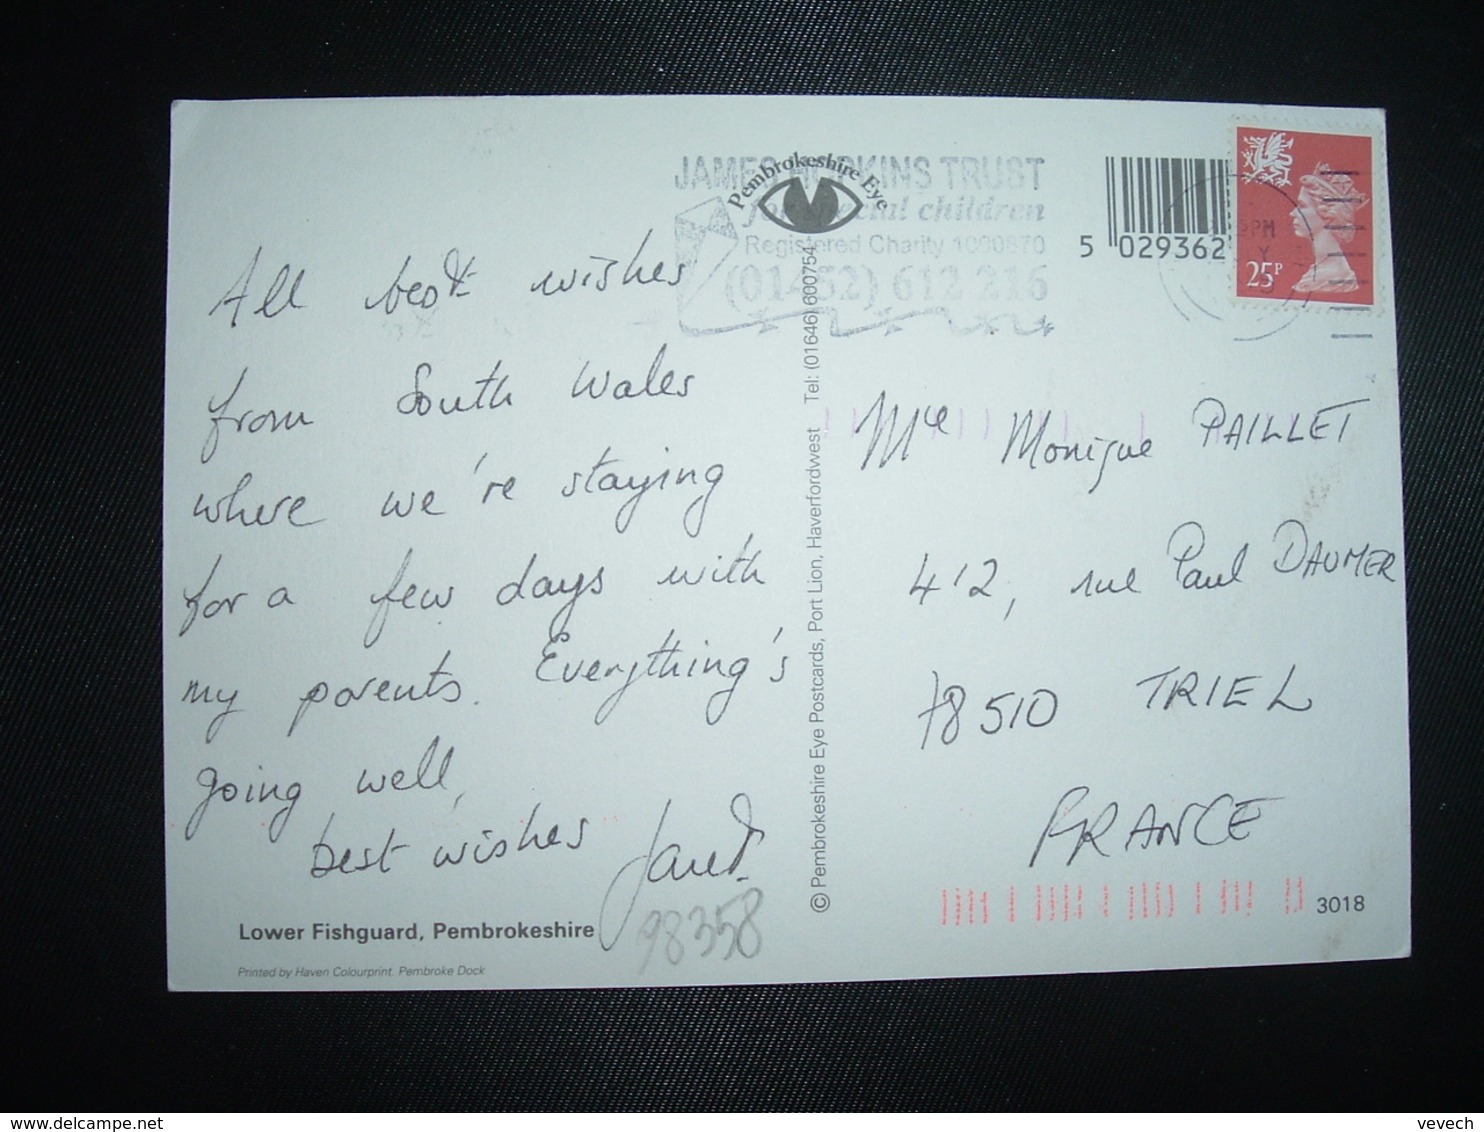 JAMES HOPKINS TRUST
for special children
Registered Charity 1000870
(01452) 612 216
Pembrokeshire Eye
5 029362
PM
25P
All best wishes
from South Wales
where we're staying
for a few days with
my parents. Everything's
going well,
best wishes Janet.
98358
Lower Fishguard, Pembrokeshire
Printed by Haven Colourprint. Pembroke Dock
© Pembrokeshire Eye Postcards, Port Lion, Haverfordwest Tel: (01646) 600754
Mle Monique PAILLET
412, rue Paul DAUMER
78510 TRIEL
FRANCE
3018
delcampe.net
vevech